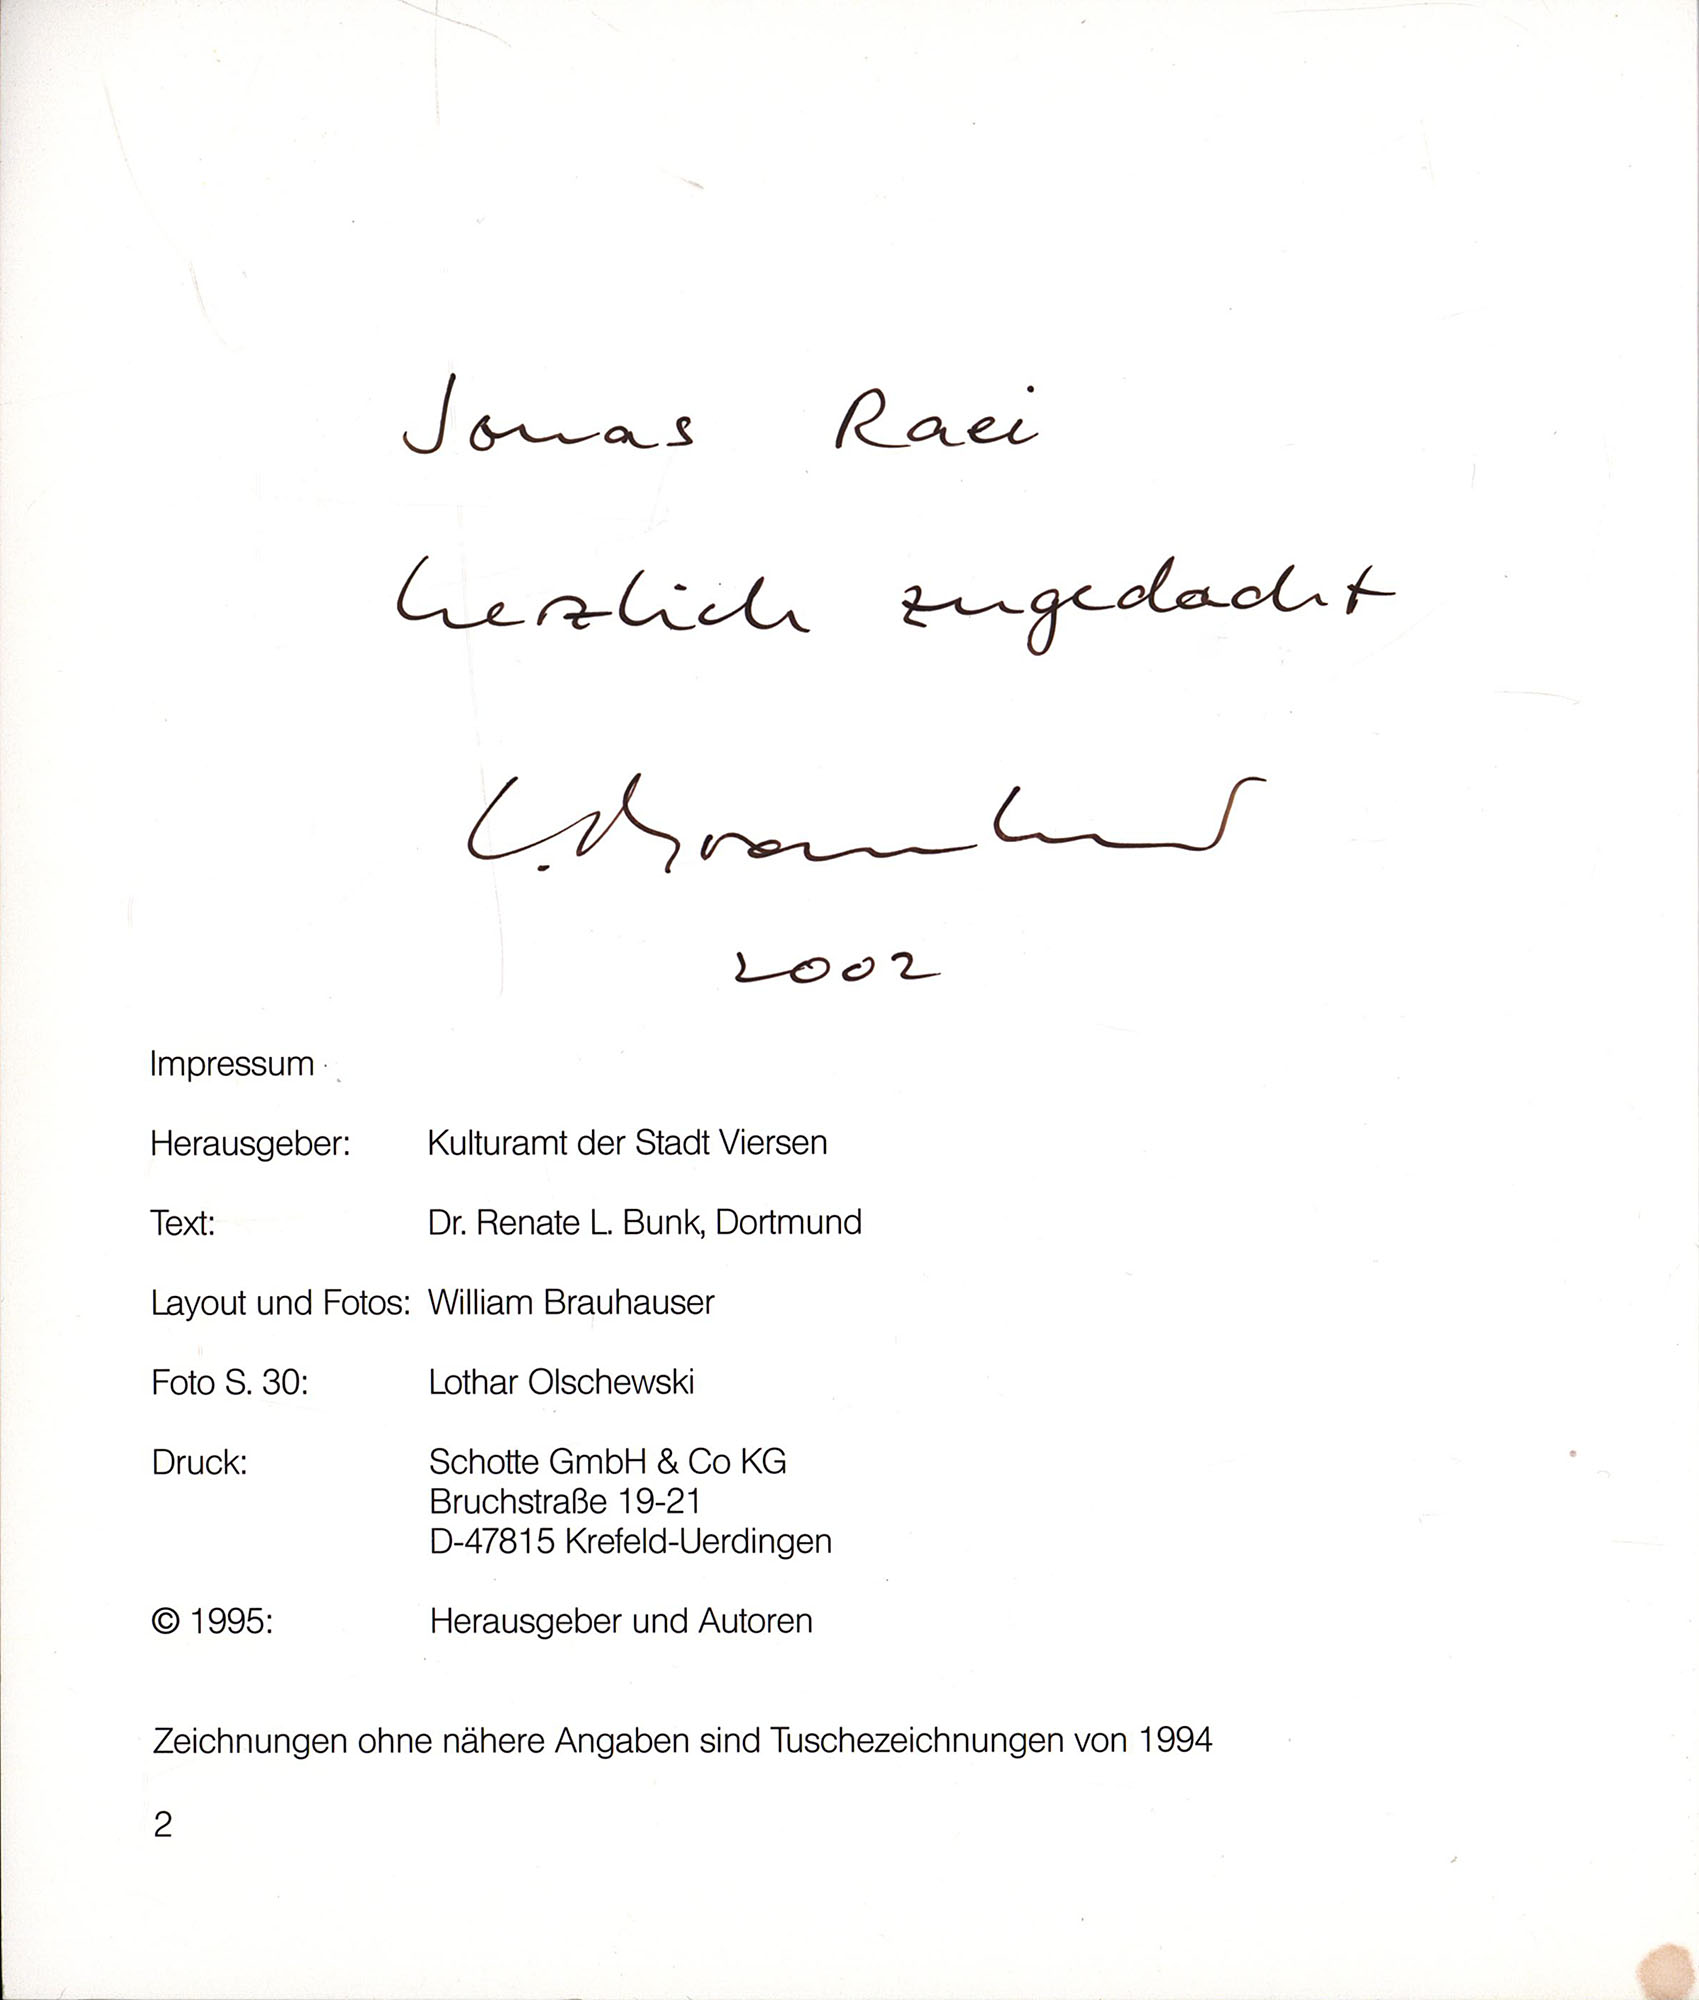 Jonas Raei
herzlich zugedacht
2002
Impressum
Herausgeber: Kulturamt der Stadt Viersen
Text: Dr. Renate L. Bunk, Dortmund
Layout und Fotos: William Brauhauser
Foto S. 30: Lothar Olschewski
Druck: Schotte GmbH & Co KG
Bruchstraße 19-21
D-47815 Krefeld-Uerdingen
© 1995: Herausgeber und Autoren
Zeichnungen ohne nähere Angaben sind Tuschezeichnungen von 1994
2